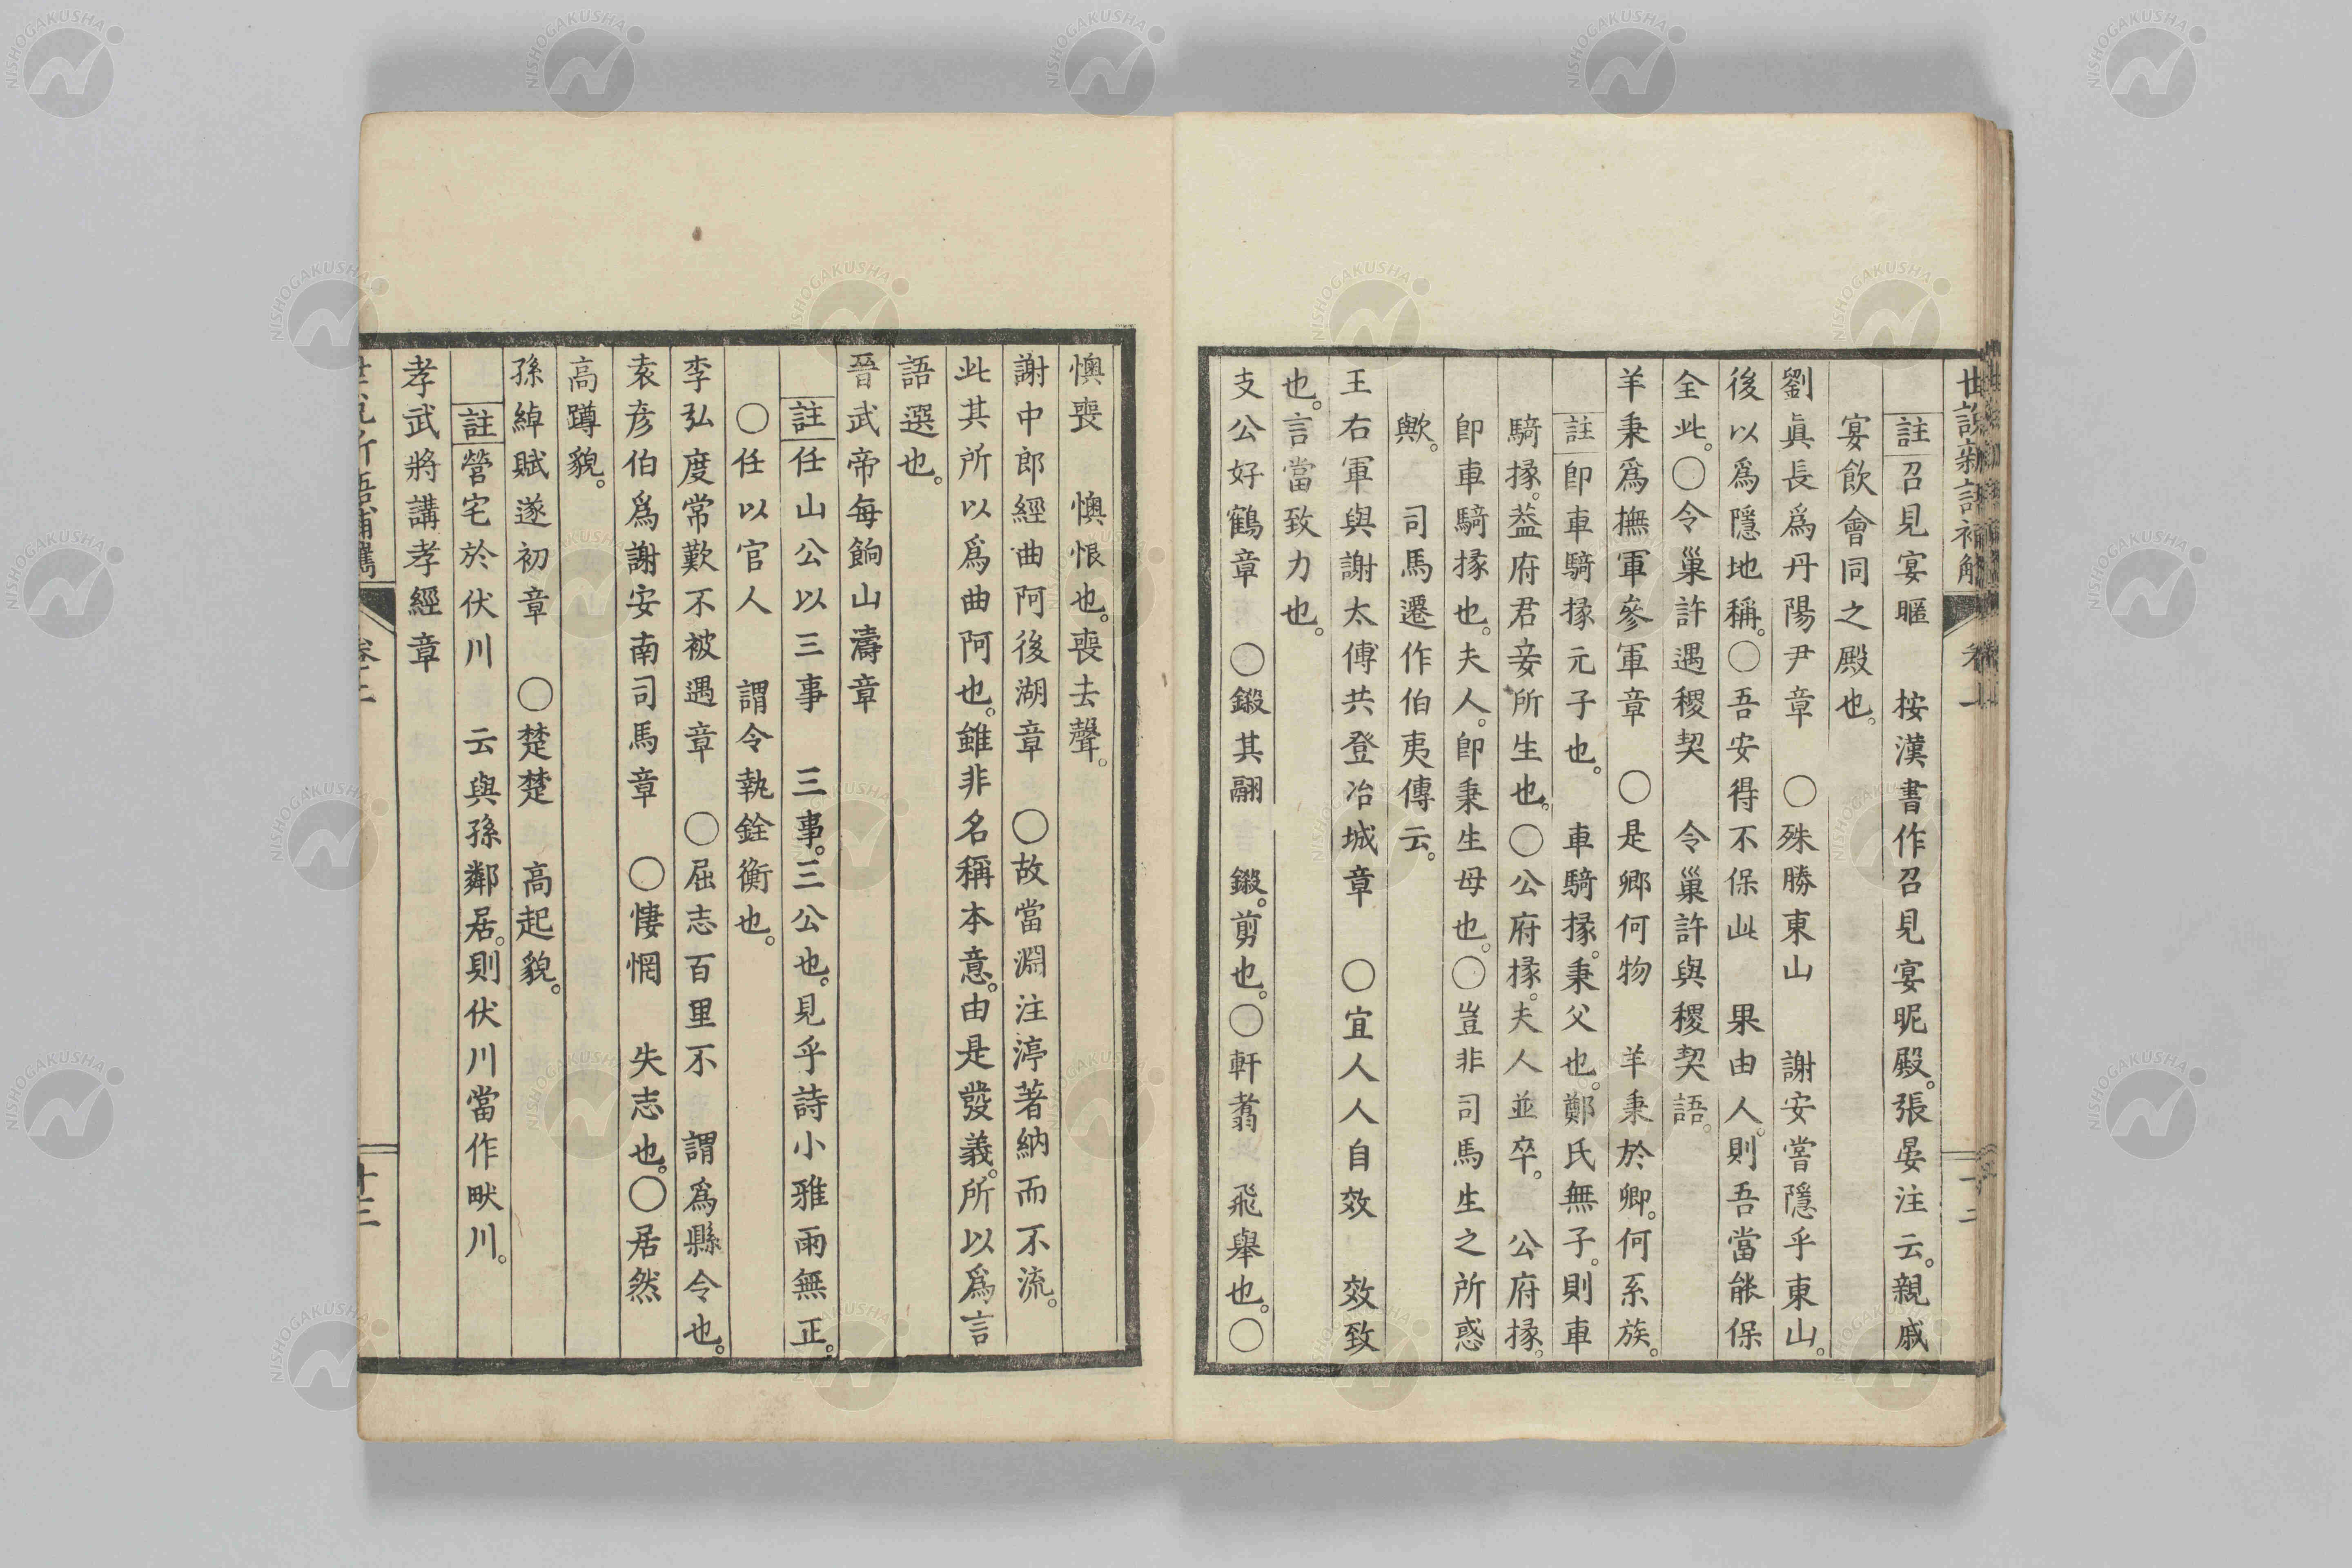 世說新語補觿 卷上 十二
註 召見宴暱 按漢書作召見宴昵殿。張晏注云。親戚
宴飲會同之殿也。
劉眞長爲丹陽尹章 〇殊勝東山 謝安嘗隱乎東山。
後以爲隱地稱。〇吾安得不保此 果由人。則吾當能保
全此。〇令巢許遇稷契 令巢許與稷契語。
羊秉爲撫軍參軍章 〇是卿何物 羊秉於卿。何系族。
註 卽車騎掾元子也。 車騎掾。秉父也。鄭氏無子。則車
騎掾。葢府君妾所生也。〇公府掾。夫人並卒。 公府掾。
卽車騎掾也。夫人。卽秉生母也。〇豈非司馬生之所惑
歟。 司馬遷作伯夷傳云。
王右軍與謝太傅共登冶城章 〇宜人人自效 效致
也。言當致力也。
支公好鶴章 〇鎩其翮 鎩。剪也。〇軒翥 飛舉也。〇
懊喪 懊恨也。喪去聲。
謝中郎經曲阿後湖章 〇故當淵注渟著納而不流。
此其所以爲曲阿也。雖非名稱本意。由是發義。所以爲言
語選也。
晉武帝每餉山濤章
註 任山公以三事 三事。三公也。見乎詩小雅雨無正。
〇任以官人 謂令執銓衡也。
李弘度常歎不被遇章 〇屈志百里不 謂爲縣令也。
袁彥伯爲謝安南司馬章 〇悽惘 失志也。〇居然
高蹲貌。
孫綽賦遂初章 〇楚楚 高起貌。
註 營宅於伏川 云與孫鄰居。則伏川當作畎川。
孝武將講孝經章
十三